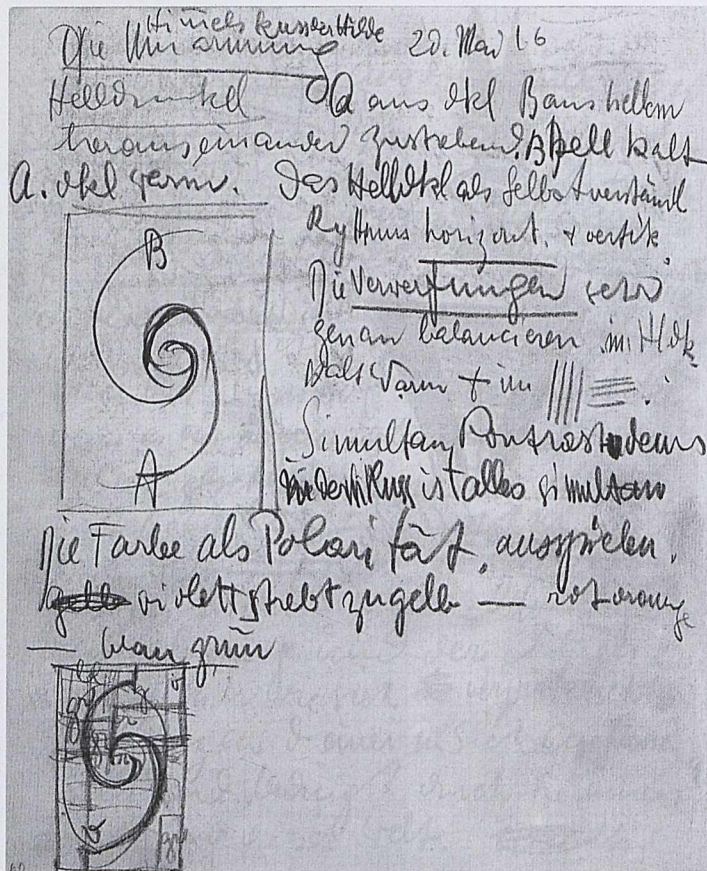 Die Umarmung 20. Mai 16
Helldunkel A aus dkl B aus hellem
heraus einander zustrebend. B hell kalt
A. dkl warm. Das Helldkl als Selbstverständl
Rythmus horizont. + vertik.
Die Verwerfungen
genau balancieren im Hdk
als Warm + im
B
A
Simultan, Kontrast
ist alles simultan
Die Farbe als Polarität, ausspielen.
gelb violett strebt zu gelb — rotorange
— blau grün